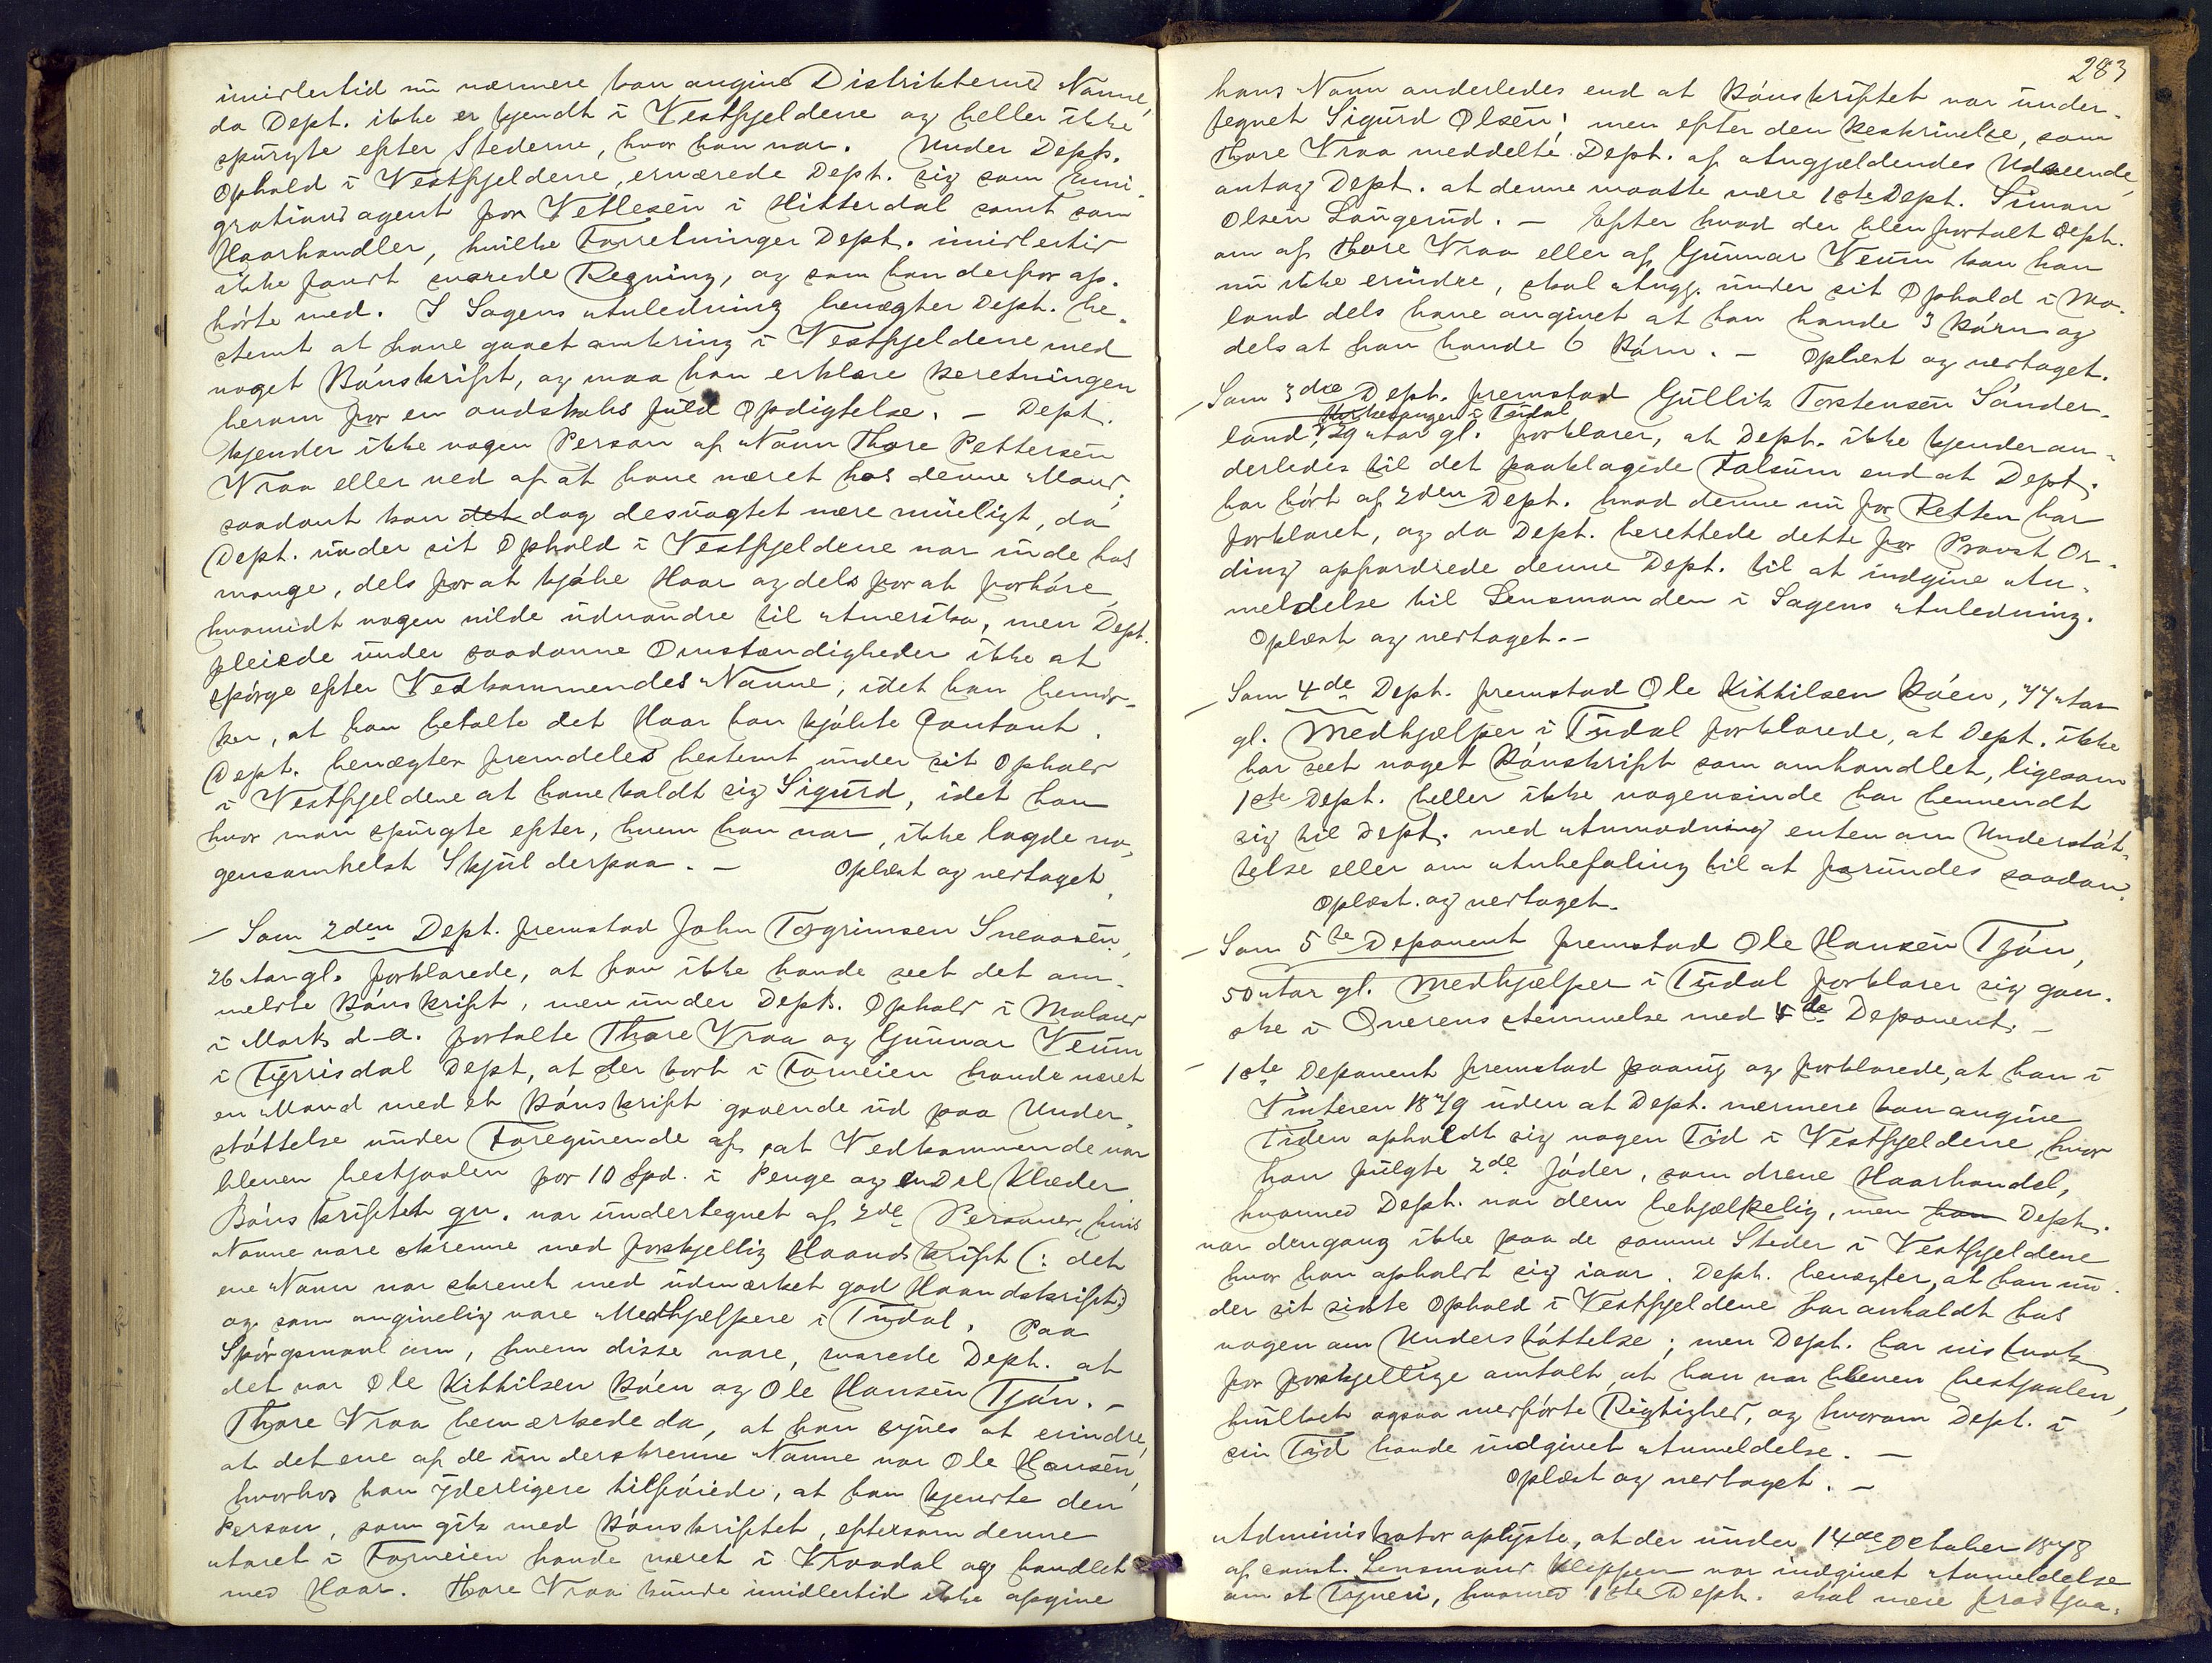 imidlertid nu nærmere kan angive Distrikternes Navne,
da Dept. ikke er kjendt i Vestfjeldene og heller ikke
spurgte efter Stederne, hvor han var. Under Depts.
Ophold i Vestfjeldene, ernærede Dept. sig som Emi-
grationsagent for Vetlesen i Hitterdal samt som
Haarhandler, hvilke Forretninger Dept. imidlertid
ikke fandt svarede Regning, og som han derfor op-
hörte med. I Sagens Anledning benægter Dept. be-
stemt at have gaaet omkring i Vestfjeldene med
noget Bönskrift, og maa han erklære Beretningen
herom for en ondskabsfuld Opdigtelse. – Dept.
kjender ikke nogen Person af Navn Thore Pettersen
Vraa eller ved af at have været hos denne Mand;
saadant kan det dog desuagtet være muligt, da
Dept. under sit Ophold i Vestfjeldene var inde hos
mange, dels for at kjöbe Haar og dels for at forhöre,
hvorvidt nogen vilde udvandre til Amerika, men Dept.
pleiede under saadanne Omstændigheder ikke at
spörge efter Vedkommendes Navne, idet han bemær-
ker, at han betalte det Haar han kjöbte Contant.
Dept. benægter fremdeles bestemt under sit Ophold
i Vestfjeldene at have kaldt sig Sigurd, idet han
hvor man spurgte efter, hvem han var, ikke lagde no-
gensomhelst Skjul derpaa. – Oplæst og vertaget.
– Som 2den Dept. fremstod John Torgrimsen Sneaasen,
26 Aar gl. forklarede, at han ikke havde seet det an-
meldte Bönskrift, men under Depts. Ophold i Moland
i Marts d.A. fortalte Thore Vraa og Gunnar Veum
i Fyrrisdal Dept, at der bort i Forveien havde været
en Mand med et Bönskrift gaaende ud paa Under-
stöttelse under Foregivende af, at Vedkommende var
bleven bestjaalen for 10 Spd. i Penge og en Del Klæder
Bönskriftet qu. var undertegnet af 2de Personer, hvis
Navne vare skrevne med forskjellig Haandskrift (: det
ene Navn var skrevet med udmærket god Haandskrift:)
og som angivelig vare Medhjelpere i Tudal. Paa
Spörgsmaal om, hvem disse vare, svarede Dept. at
det var Ole Kittilsen Böen og Ole Hansen Tjön. –
Thore Vraa bemærkede da, at han synes at erindre,
at det ene af de underskrevne Navne var Ole Hansen,
hvorhos han yderligere tilföiede, at han kjendte den
Person, som gik med Bönskriftet, eftersom denne
Aaret i Forveien havde været i Vraadal og handlet
med Haar. Thore Vraa kunde imidlertid ikke opgive
283
hans Navn anderledes end at Bönskriftet var under-
tegnet Sigurd Olsen; men efter den Beskrivelse, som
Thore Vraa meddelte Dept. af Angjældendes Udseende,
antog Dept. at denne maatte være 1ste Dept. Simon
Olsen Langerud. – Efter hvad der blev fortalt Dept.
om af Thore Vraa eller af Gunnar Veum kan han
nu ikke erindre, skal Angj. under sit Ophold i Mo-
land dels have angivet at han havde 3 Börn og
dels at han havde 6 Börn. – Oplæst og vertaget.
– Som 3die Dept. fremstod Gullik Torstensen Sönder-
Kirkesanger i Tudal
land, 29 Aar gl. forklarer, at Dept. ikke kjender an-
derledes til det paaklagede Falsum end at Dept.
har hört af 2den Dept. hvad denne nu for Retten har
forklaret, og da Dept. berettede dette for Provst Or-
ding opfordrede denne Dept. til at indgive An-
meldelse til Lensmanden i Sagens Anledning.
Oplæst og vertaget. –
– Som 4de Dept. fremstod Ole Kittilsen Böen, 47 Aar
gl. Medhjælper i Tudal forklarede, at Dept. ikke
har seet noget Bönskrift som omhandlet, ligesom
1ste Dept. heller ikke nogensinde har henvendt
sig til Dept. med Anmodning enten om Understöt-
telse eller om Anbefaling til at forundes saadan.
Oplæst og vertaget.
– Som 5te Deponent fremstod Ole Hansen Tjön,
50 Aar gl. Medhjælper i Tudal forklarer sig gan-
ske i Overensstemmelse med 4de Deponent. –
– 1ste Deponent fremstod paany og forklarede, at han i
Vinteren 1879 uden at Dept. nærmere kan angive
Tiden opholdt sig nogen Tid i Vestfjeldene, hvor
han fulgte 2de Jöder, som dreve Haarhandel,
hvormed Dept. var dem behjælpelig, men han Dept.
var dengang ikke paa de samme Steder i Vestfjeldene
hvor han opholdt sig iaar. Dept. benægter, at han un-
der sit sidste Ophold i Vestfjeldene har anholdt hos
nogen om Understöttelse; men Dept. har vistnok
for forskjellige omtalt, at han var bleven bestjaalen,
hvilket ogsaa medförte Rigtighed, og hvorom Dept. i
sin Tid havde indgivet Anmeldelse. –
Oplæst og vertaget. –
Administrator oplyste, at der under 14de October 1878
af const. Lensmand Kleppen var indgivet Anmeldelse
om et Tyveri, hvorved 1ste Dept. skal være frastjaa-